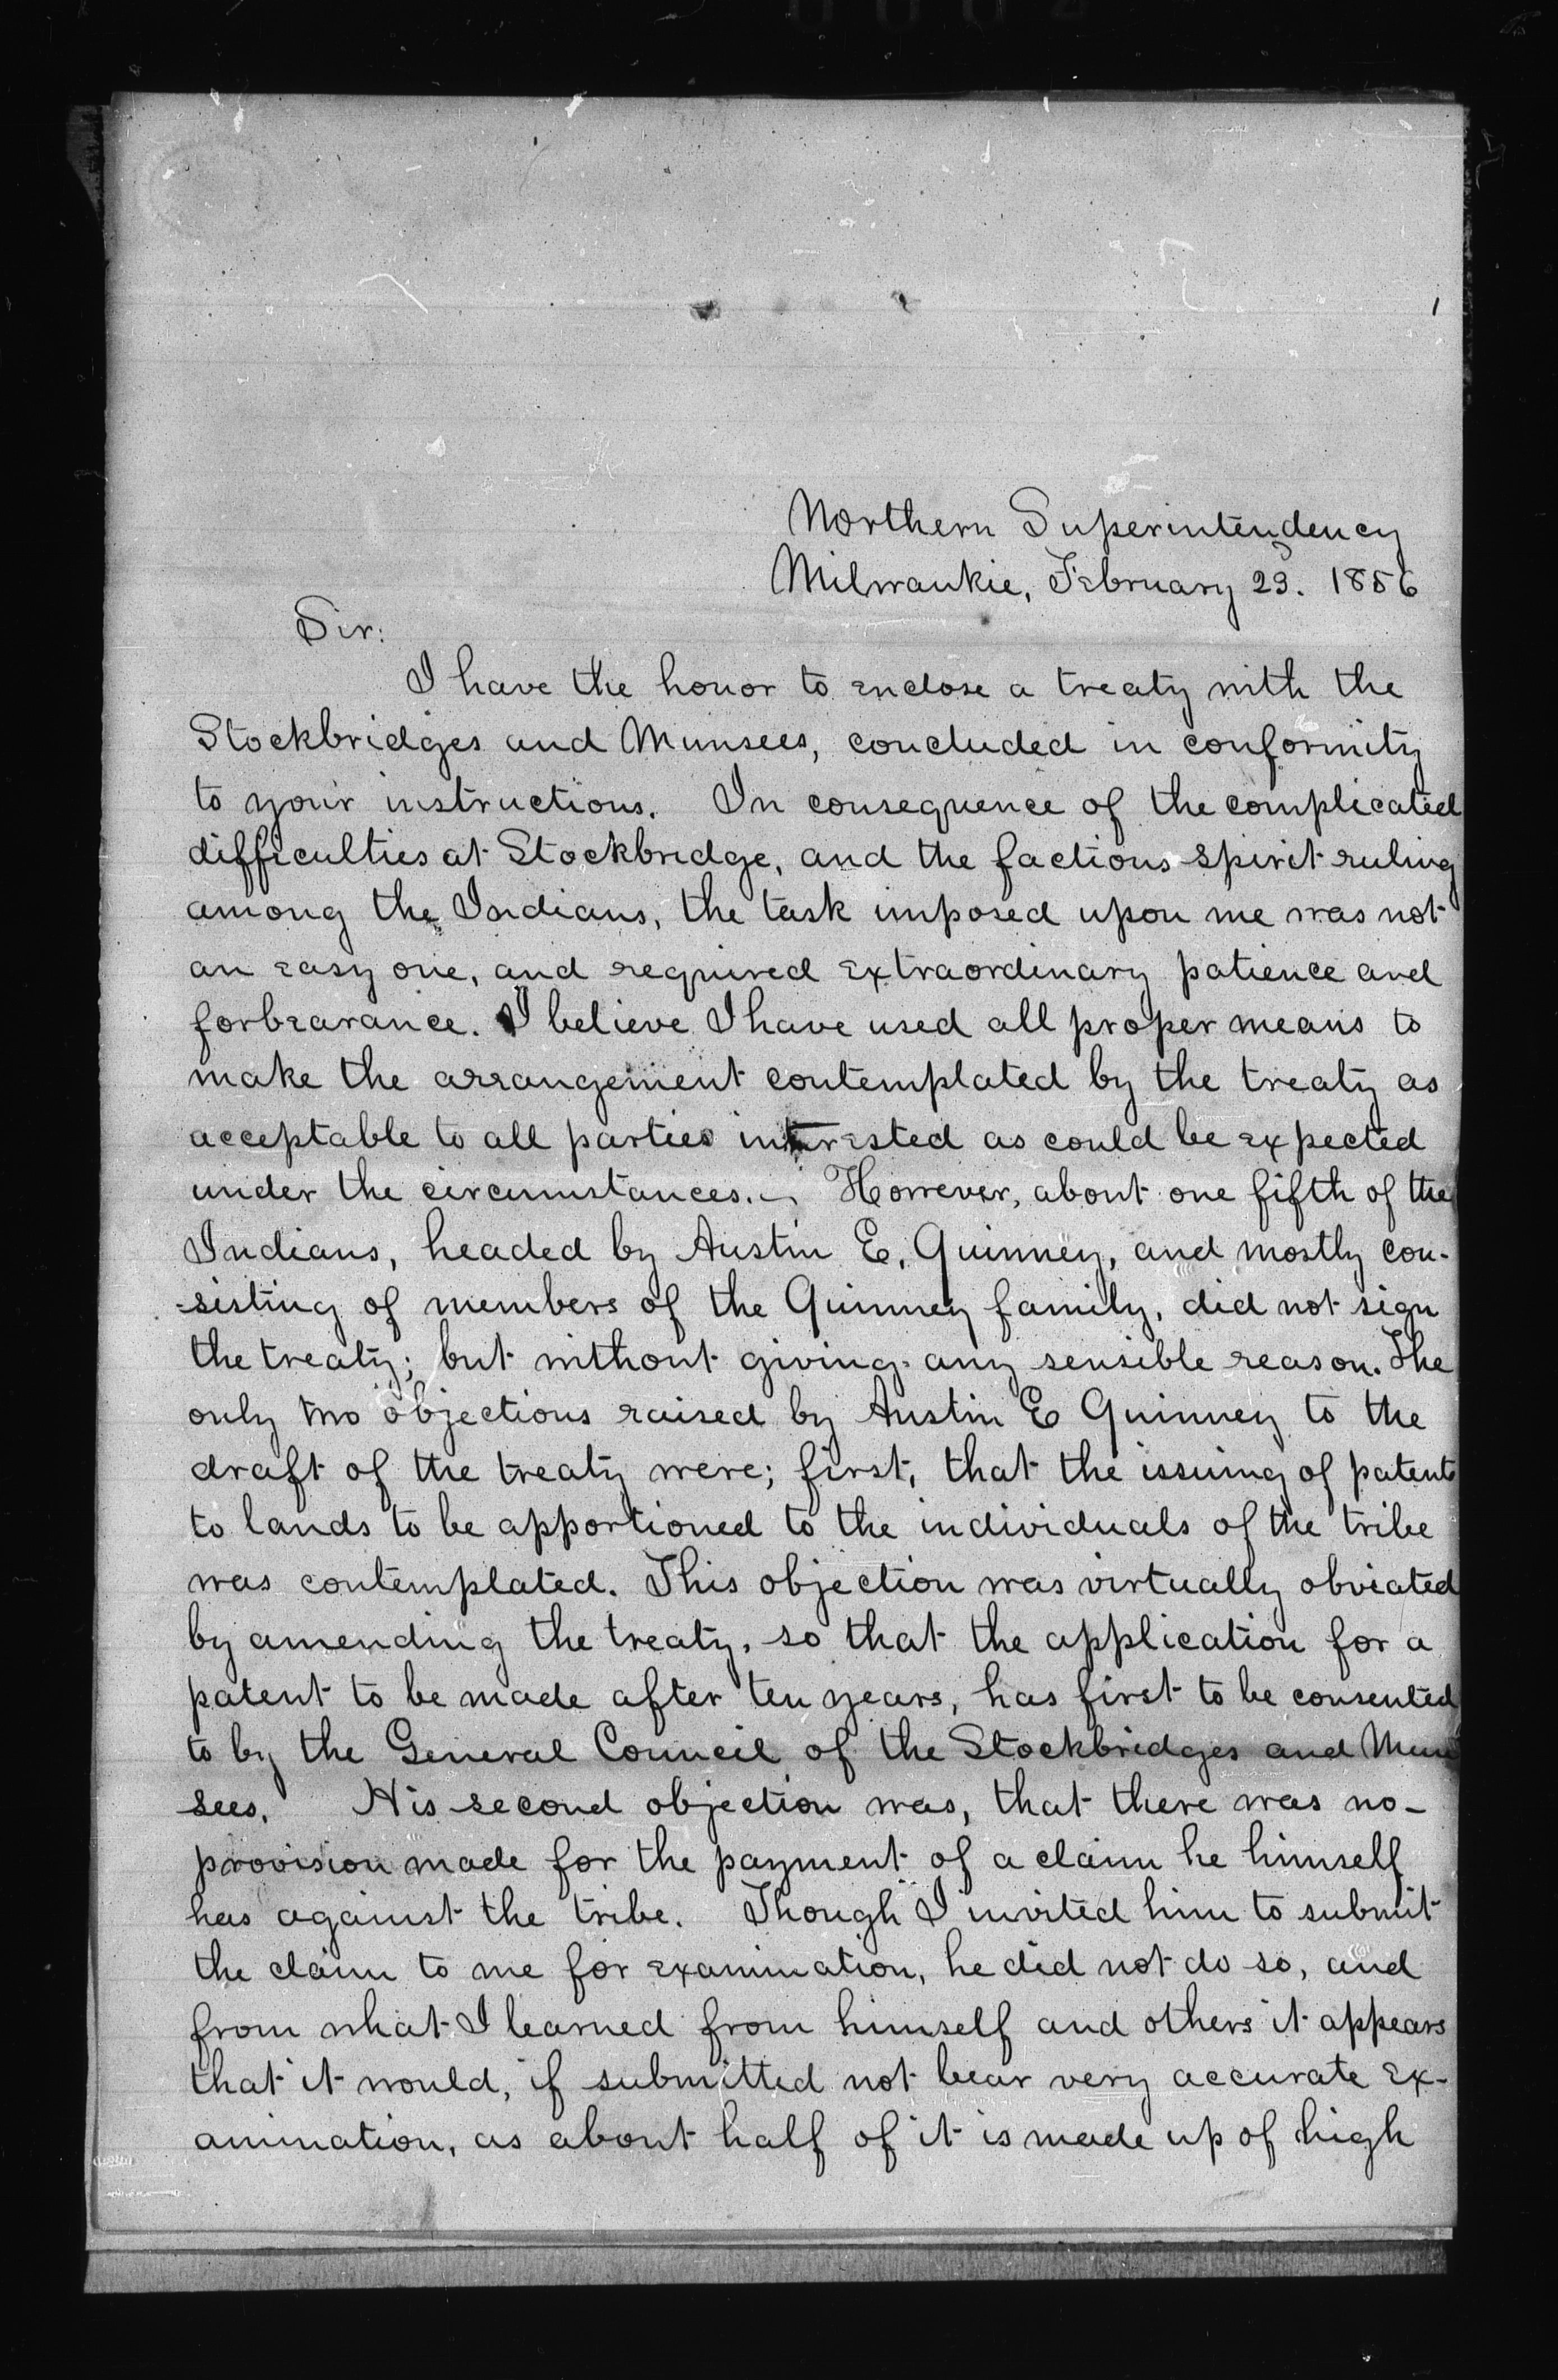 1
Northern Superintendency
Milwaukie, February 23. 1856
Sir:
I have the honor to enclose a treaty with the
Stockbridges and Munsees, concluded in conformity
to your instructions. In consequence of the complicated
difficulties at Stockbridge, and the factious spirit ruling
among the Indians, the task imposed upon me was not
an easy one, and required extraordinary patience and
forbearance. I believe I have used all proper means to
make the arrangement contemplated by the treaty as
acceptable to all parties interested as could be expected
under the circumstances. However, about one fifth of the
Indians, headed by Austin E. Quinney, and mostly con-
-sisting of members of the Quinney family, did not sign
the treaty; but without giving any sensible reason. The
only two objections raised by Austin E Quinney to the
draft of the treaty were; first, that the issuing of patents
to lands to be apportioned to the individuals of the tribe
was contemplated. This objection was virtually obviated
by amending the treaty, so that the application for a
patent to be made after ten years, has first to be consented
to by the General Council of the Stockbridges and Mun
sees. His second objection was, that there was no-
provision made for the payment of a claim he himself
has against the tribe. Though I invited him to submit
the claim to me for examination, he did not do so, and
from what I learned from himself and others it appears
that it would, if submitted not bear very accurate ex-
amination, as about half of it is made up of high